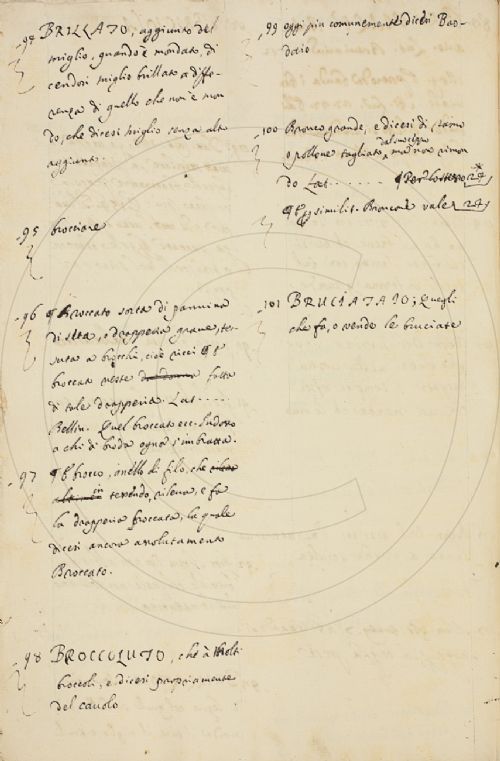 94 BRILLATO, aggiunto del
miglio, quando è mondato, di
cendosi miglio brillato a diffe-
renza di quello che non è mon
do, che dicesi miglio senza alt.o
aggiunto.
95 brocciare
96 ¶ Broccato sorta di pannina
di seta, o drapperia grave, tes-
suta a brocchi, cioè ricci ¶ E
broccat. veste fatta
di tale drapperia. Lat. . . . .
Bellin. Quel broccato ecc. Indosso
a chi di broda ognor s'imbratta.
97 ¶ E brocco, anello di filo, che
in tessendo, rileva, e fa
la drapperia broccata, la quale
dicesi ancora assolutamente
Broccato.
98 BROCCOLUTO, che à Molti
broccoli, e dicesi propriamente
del cavolo
99 oggi più comunemente dicesi Bro-
100 Bronco grande, e dicesi di ramo
o pollone tagliato, ma non rimon
do Lat. . . . . . . ¶ Per lo stesso 24
¶ E per similit. Broncone vale 24
101 BRUCIATAIO; Quegli
che fa, o vende le bruciate